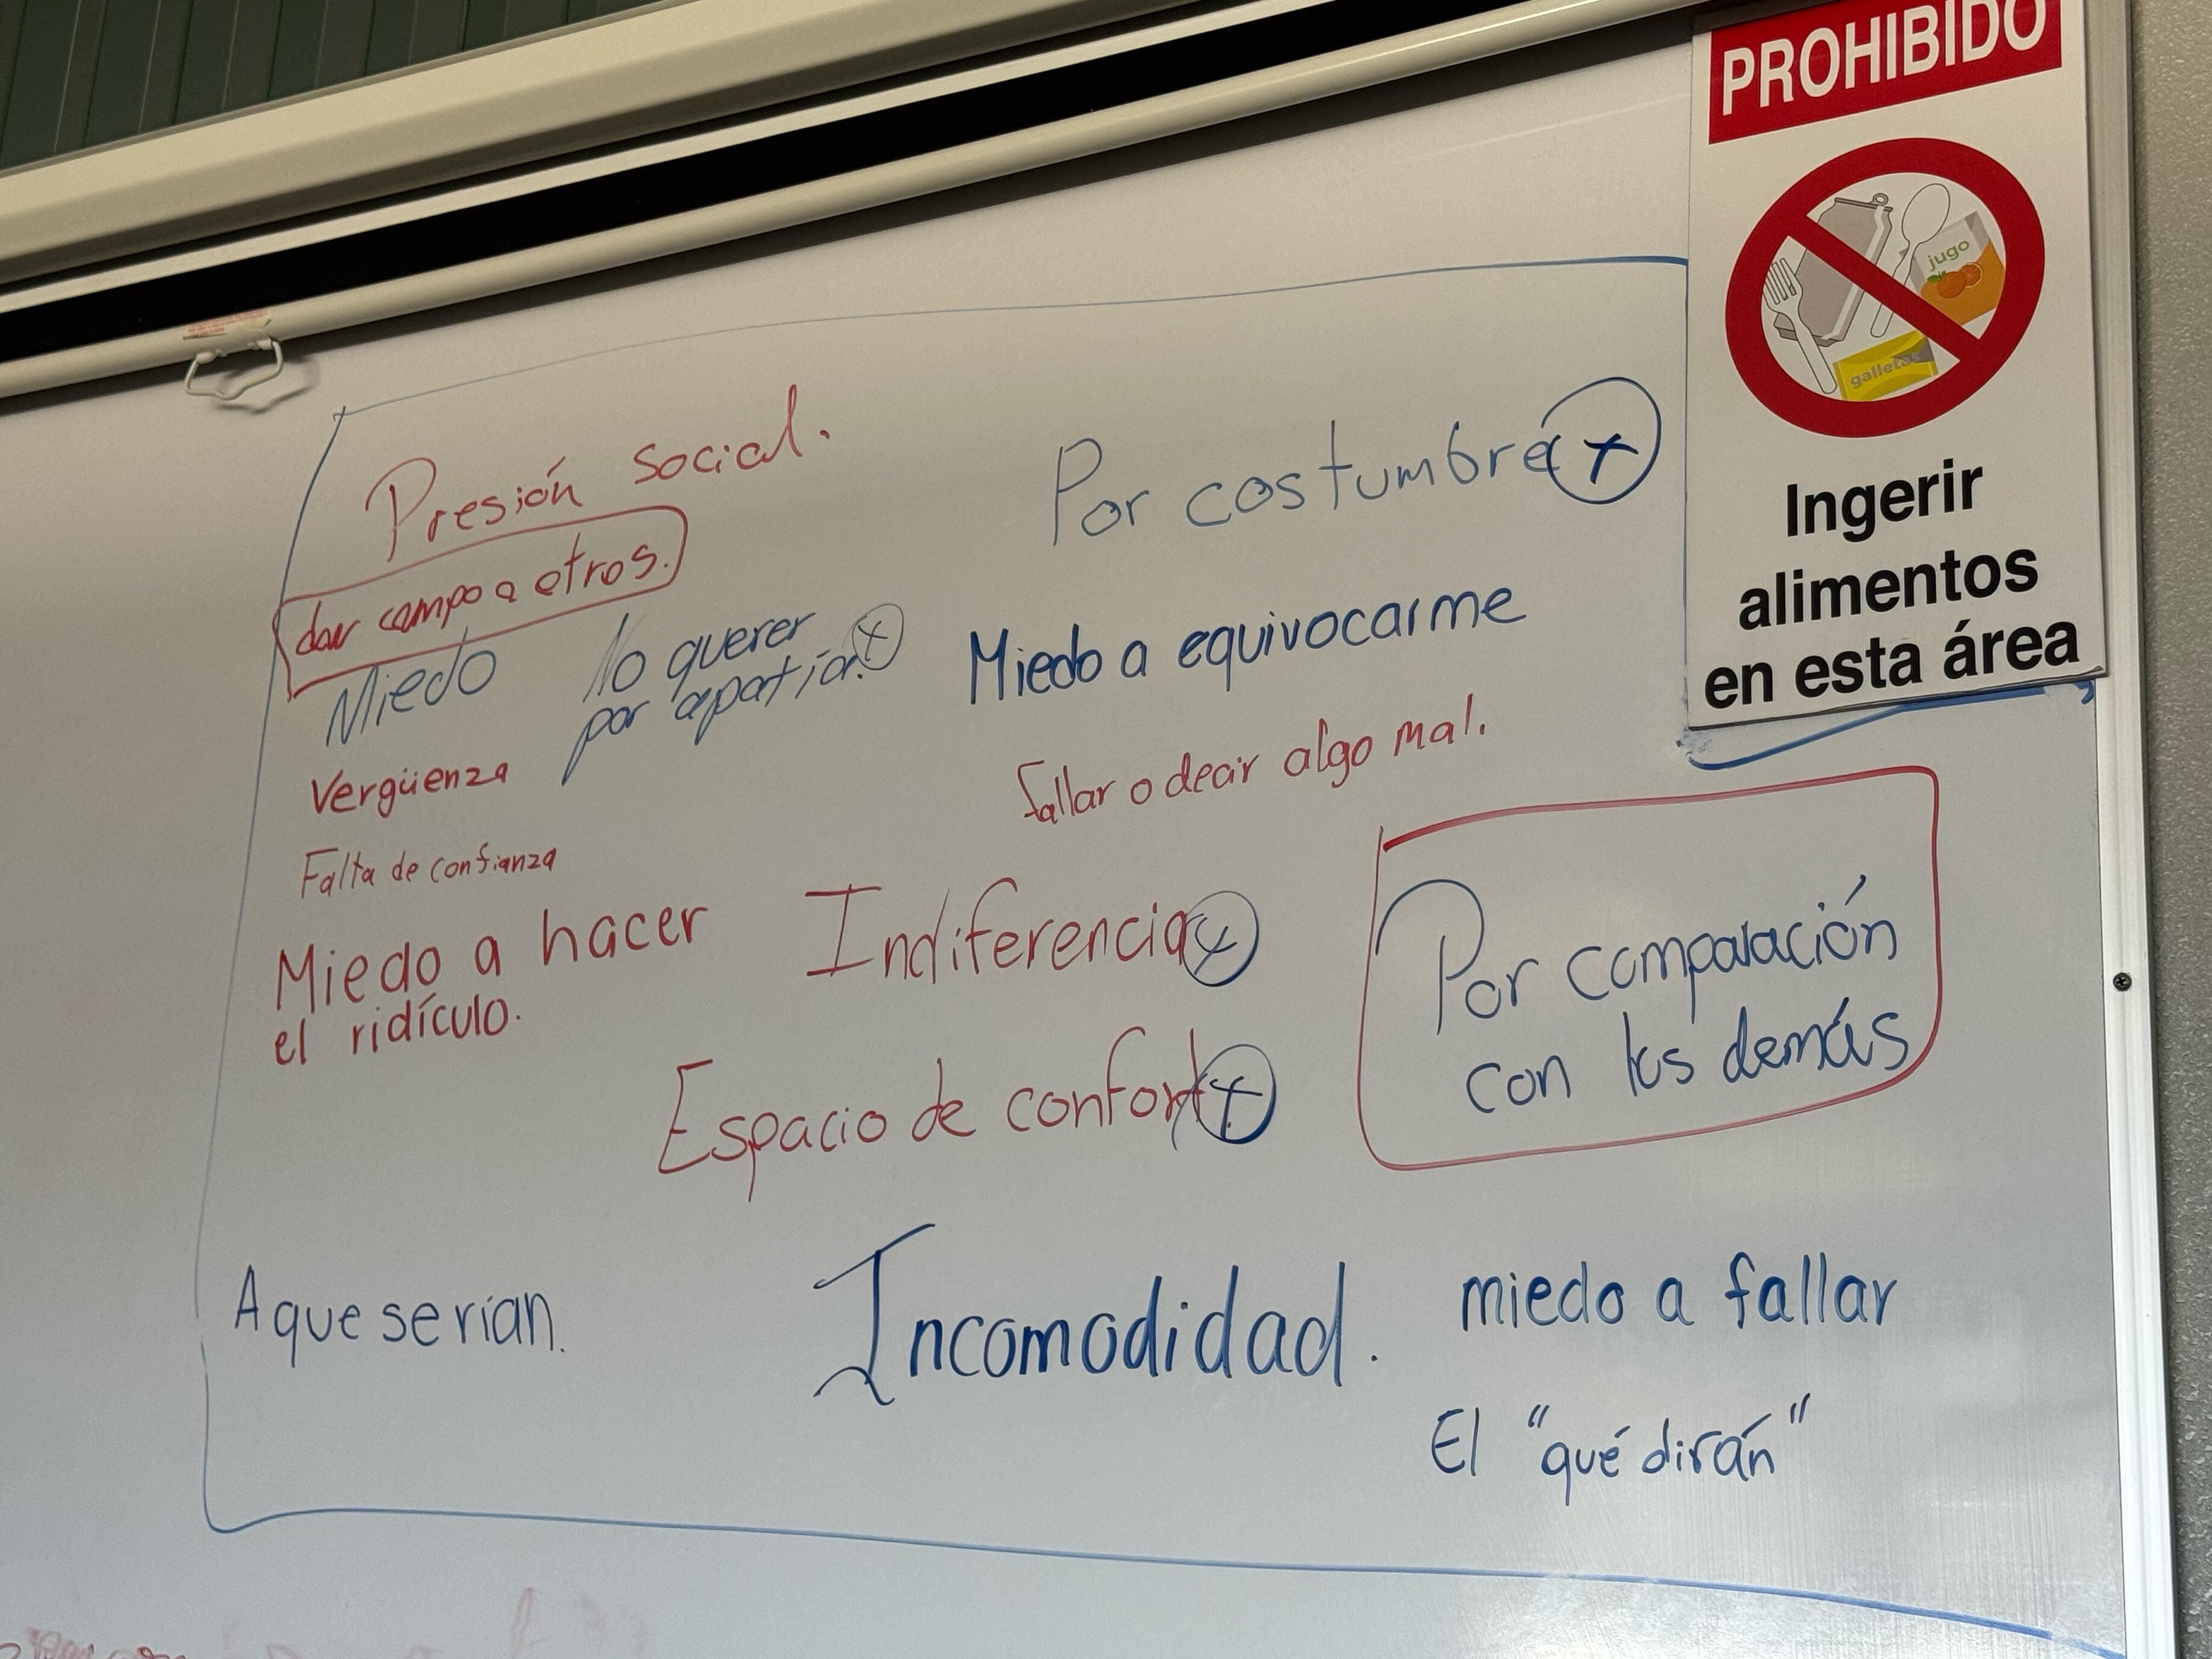 PROHIBIDO
jugo
galletas
Ingerir
alimentos
en esta área
Presión social.
dar campo a otros.
Miedo
No querer
por apatía.
Vergüenza
Falta de confianza
Miedo a hacer
el ridículo.
Por costumbre
Miedo a equivocarme
fallar o decir algo mal.
Indiferencia
Espacio de confort
Por comparación
con los demás
A que se rían.
Incomodidad.
miedo a fallar
El "qué dirán"